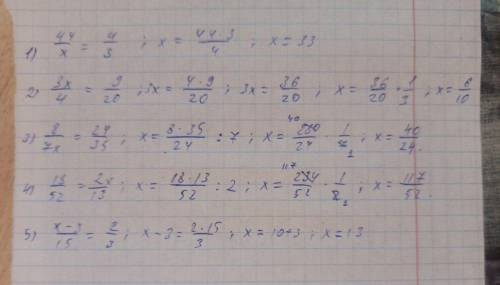 1) 44/x = 4/3 ; x = 44·3/4 ; x = 33
2) 3x/4 = 9/20 ; 3x = 4·9/20 ; 3x = 36/20 ; x = 36/20 · 1/3 ; x = 6/10
3) 8/7x = 24/35 ; x = 8·35/24 : 7 ; x = 40 280/24 · 1/7 1 ; x = 40/24.
4) 18/52 = 2x/13 ; x = 18·13/52 : 2 ; x = 117 234/52 · 1/2 1 ; x = 117/52.
5) x-3/15 = 2/3 ; x-3 = 2·15/3 ; x = 10+3 ; x = 13